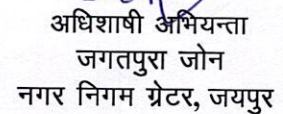 अधिशाषी अभियन्ता
जगतपुरा जोन
नगर निगम ग्रेटर, जयपुर